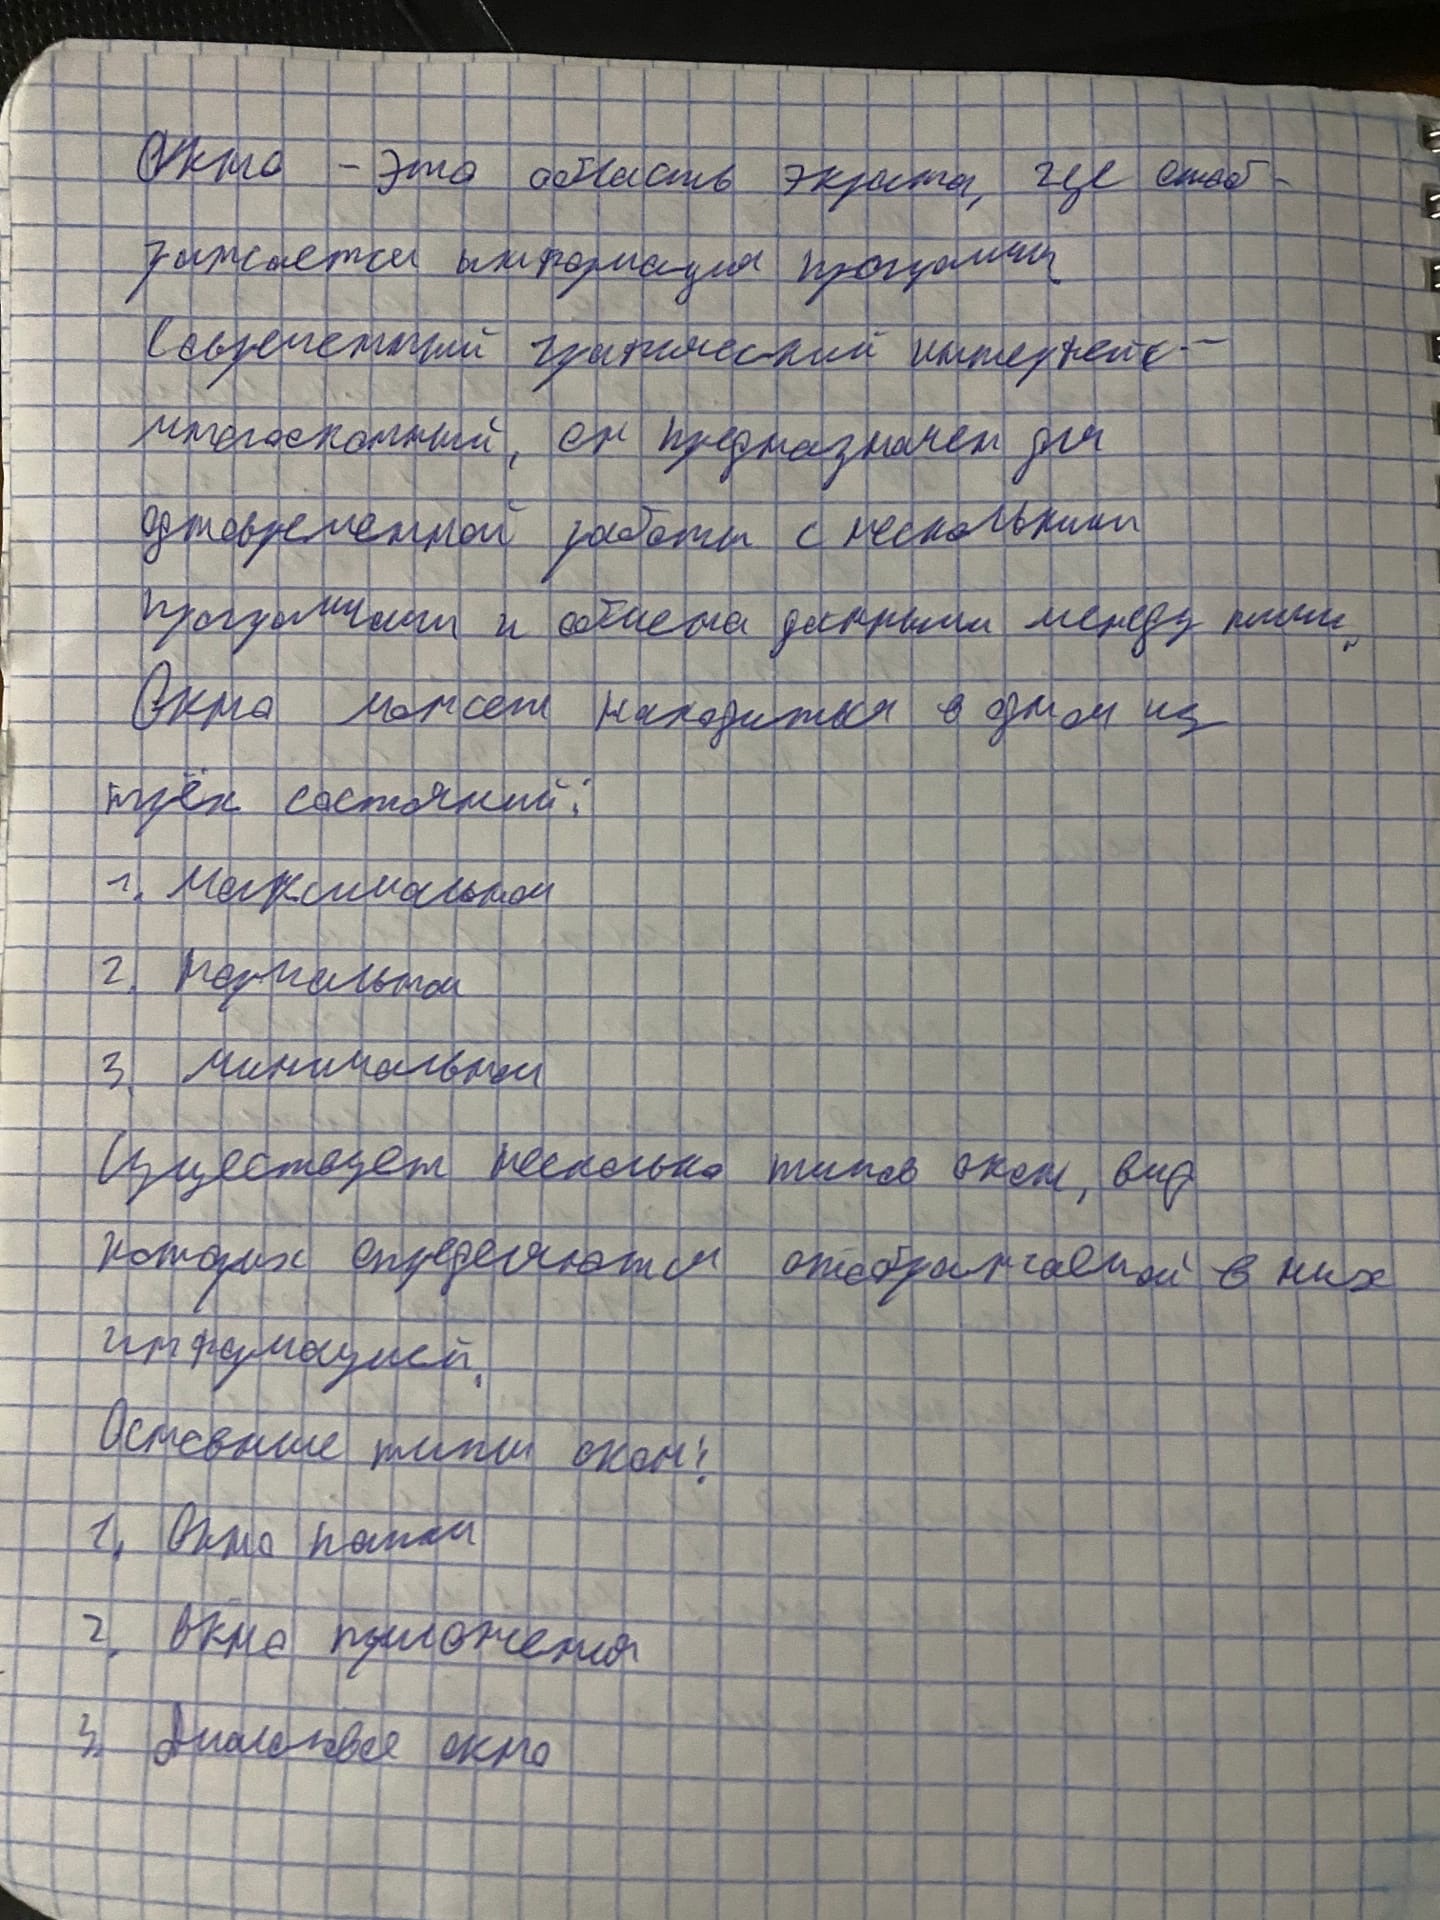 Окно – это область экрана, где отоб-
ражается информация программ
Современный графический интерфейс –
многооконный, он предназначен для
одновременной работы с несколькими
программами и обмена данными между ними.
Окно может находиться в одном из
трёх состояний:
1. максимальном
2. нормальном
3. минимальном
Существует несколько типов окон, вид
которых определяется отображаемой в них
информацией.
Основные типы окон:
1. Окно папки
2. Окно приложения
3. Диалоговое окно